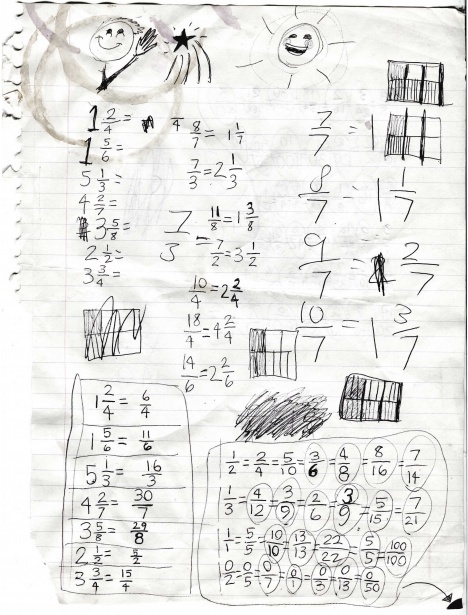 1 2/4 =
1 5/6 =
5 1/3 =
4 2/7 =
3 5/8 =
2 1/2 =
3 3/4 =
8/7 = 1 1/7
7/3 = 2 1/3
11/8 = 1 3/8
7/2 = 3 1/2
10/4 = 2 2/4
18/4 = 4 2/4
14/6 = 2 2/6
7/3
7/7 = 1
8/7 = 1 1/7
9/7 = 1 2/7
10/7 = 1 3/7
1 2/4 = 6/4
1 5/6 = 11/6
5 1/3 = 16/3
4 2/7 = 30/7
3 5/8 = 29/8
2 1/2 = 5/2
3 3/4 = 15/4
1/2 = 2/4 = 5/10 = 3/6 = 4/8 = 8/16 = 7/14
1/3 = 4/12 = 3/9 = 2/6 = 3/9 = 5/15 = 7/21
1/1 = 5/5 = 10/10 = 13/13 = 22/22 = 5/5 = 100/100
0/2 = 0/5 = 0/7 = 0/1 = 0/3 = 0/13 = 0/50